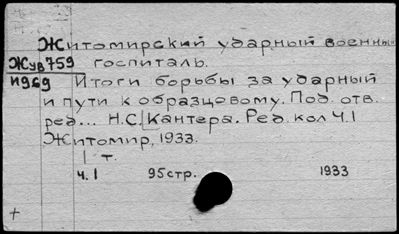 Житомирский ударный военный
Жув759 госпиталь.
И969 Итоги борьбы за ударный
и пути к образцовому. Под отв.
ред... Н.С. Кантера. Ред. кол Ч.1
Житомир, 1933.
1 т.
Ч.1 95стр. 1933
+